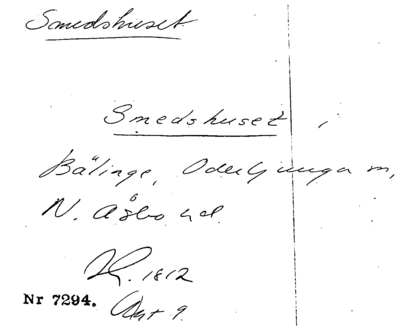 Smedshuset
Smedshuset i
Bälinge, Oderljunga m,
N. Åsbo hd
Kf. 1812
Nr 7294. Akt 9.